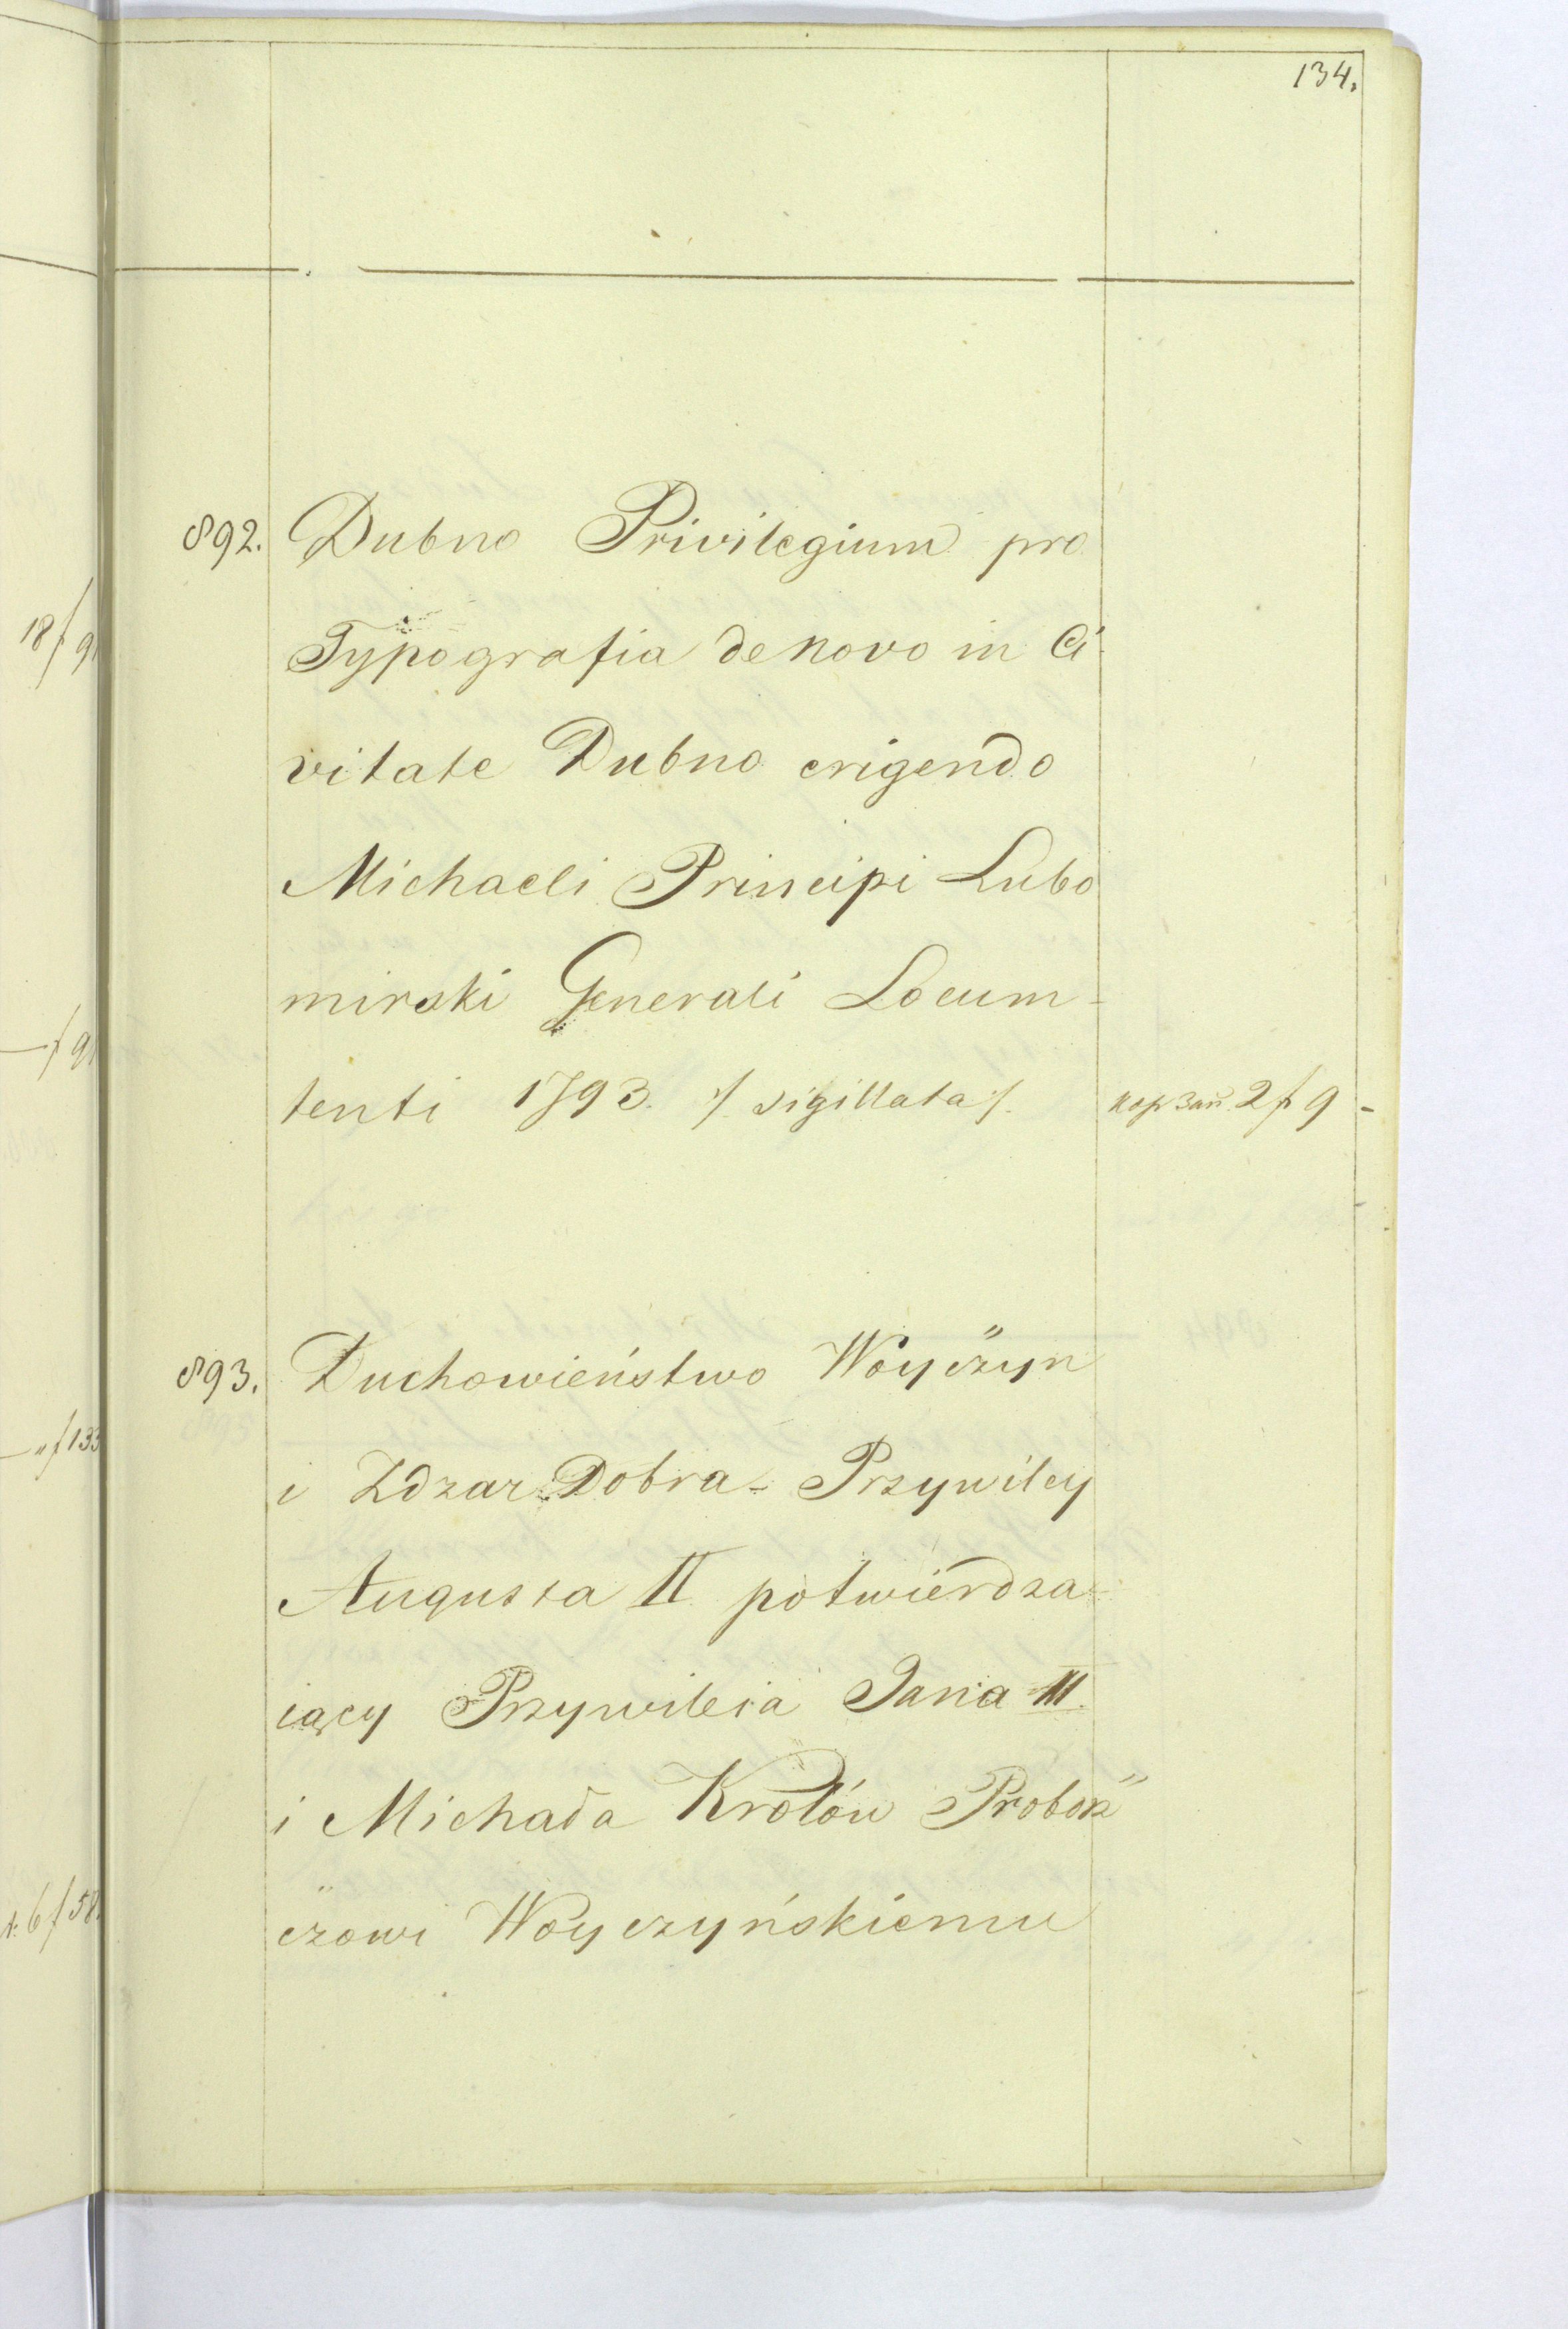 134.
892. Dubno Privilegium pro
Typografia de novo in Ci-
vitate Dubno erigendo
Michaeli Principi Lubo
mirski Generali Locum-
tenti 1793. ·/. sigillata ·/. кор Зап. 2 f 9 -
893. Duchowieństwo Woyczyn
i Zdzar Dobra - Przywiley
Augusta II potwierdza-
iący Przywileia Jana III.
i Michała Królów Probosz"
"czowi Woyczyńskiemu
18 f 91
— f 91
— " f 133
6 f 58.